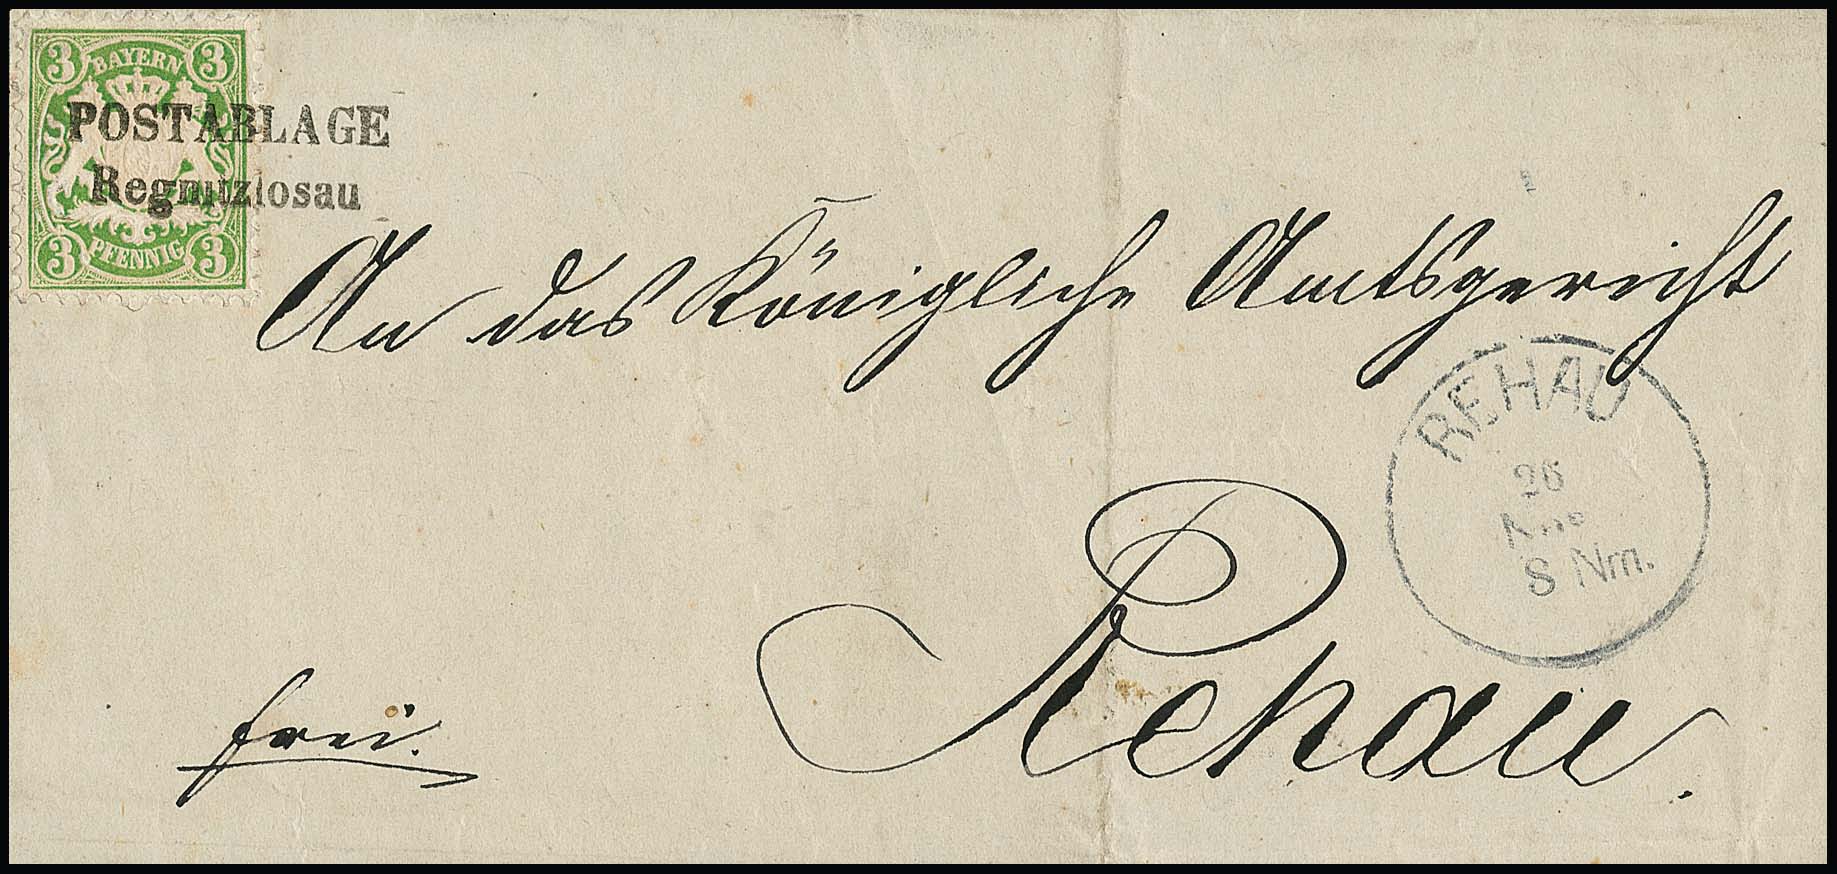 3 BAYERN 3
POSTABLAGE
Regnitzlosau
3 PFENNIG 3
An das Königliche Amtsgericht
REHAU
26
8 Nm.
Rehau.
frei.